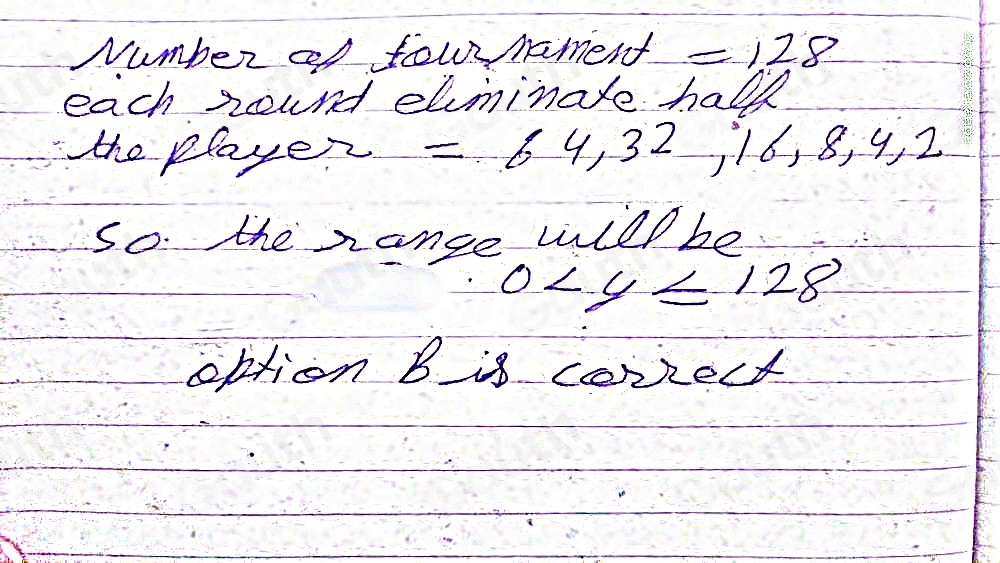 Number of tournament = 128
each round eliminate half
the player = 64, 32, 16, 8, 4, 2
so the range will be
0 < y ≤ 128
option B is correct